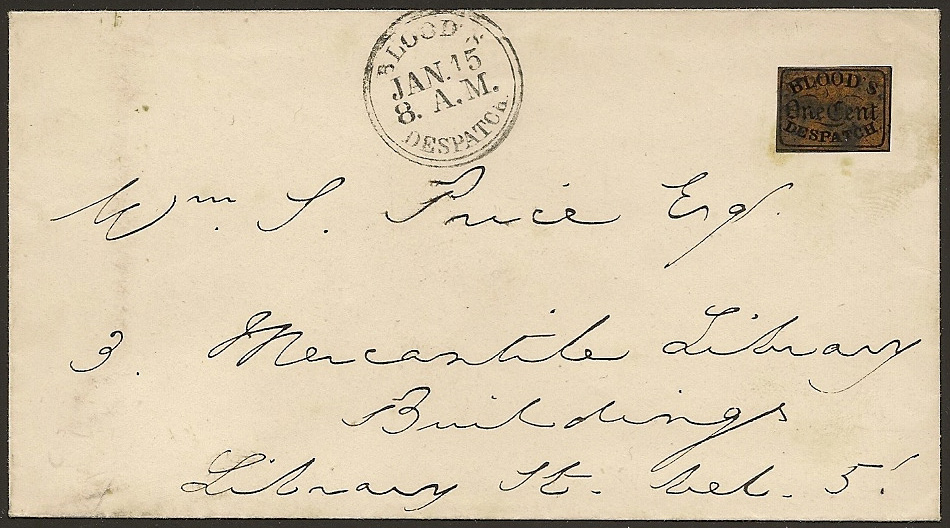 BLOOD'S
JAN. 15
8. A.M.
DESPATCH.
BLOOD'S
One Cent
DESPATCH.
Wm. S. Price Esq.
3. Mercantile Library
Buildings
Library St. bel. 5'